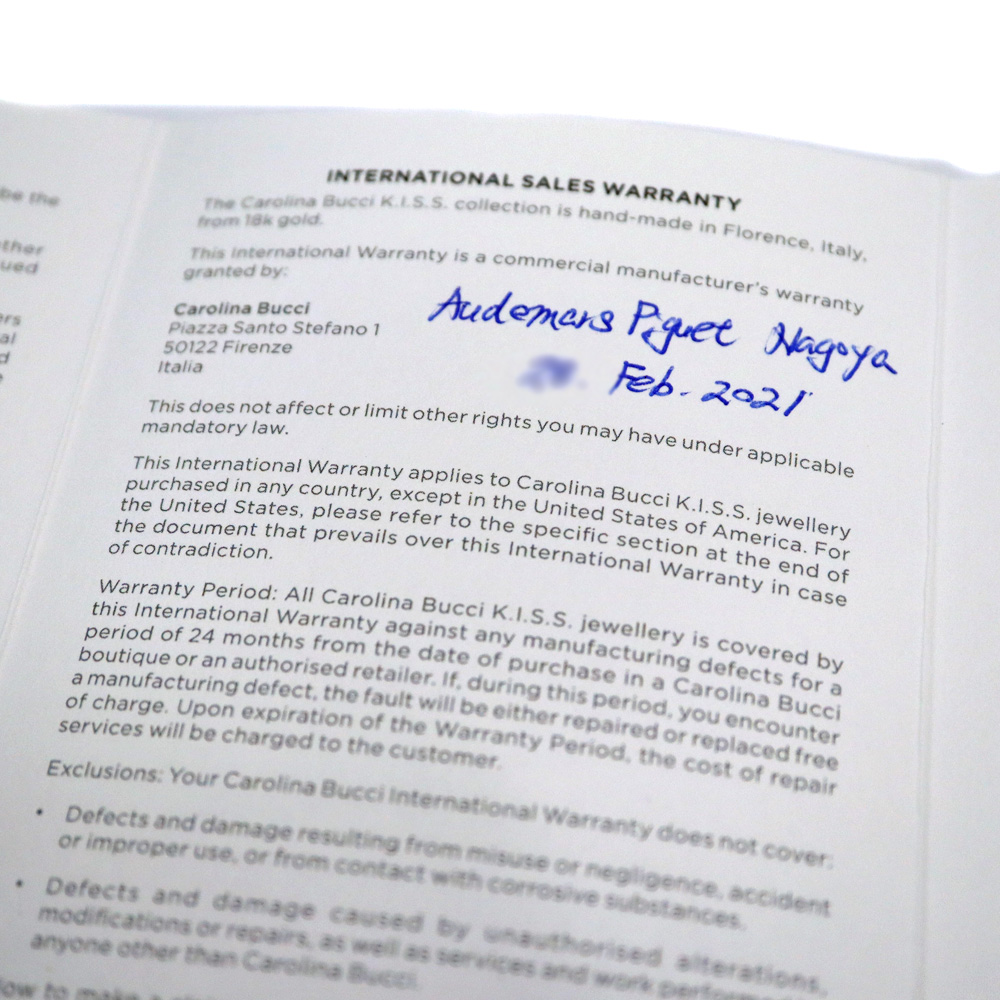 be the
ther
ued
ers
al
d
INTERNATIONAL SALES WARRANTY
The Carolina Bucci K.I.S.S. collection is hand-made in Florence, Italy,
from 18k gold.
This International Warranty is a commercial manufacturer's warranty
granted by:
Carolina Bucci
Piazza Santo Stefano 1
50122 Firenze
Italia
Audemars Piguet Nagoya
Feb. 2021
This does not affect or limit other rights you may have under applicable
mandatory law.
This International Warranty applies to Carolina Bucci K.I.S.S. jewellery
purchased in any country, except in the United States of America. For
the United States, please refer to the specific section at the end of
the document that prevails over this International Warranty in case
of contradiction.
Warranty Period: All Carolina Bucci K.I.S.S. jewellery is covered by
this International Warranty against any manufacturing defects for a
period of 24 months from the date of purchase in a Carolina Bucci
boutique or an authorised retailer. If, during this period, you encounter
a manufacturing defect, the fault will be either repaired or replaced free
of charge. Upon expiration of the Warranty Period, the cost of repair
services will be charged to the customer.
Exclusions: Your Carolina Bucci International Warranty does not cover:
• Defects and damage resulting from misuse or negligence, accident
or improper use, or from contact with corrosive substances.
• Defects and damage caused by unauthorised alterations,
modifications or repairs, as well as services and work
anyone other than Carolina Bucci.
to make a